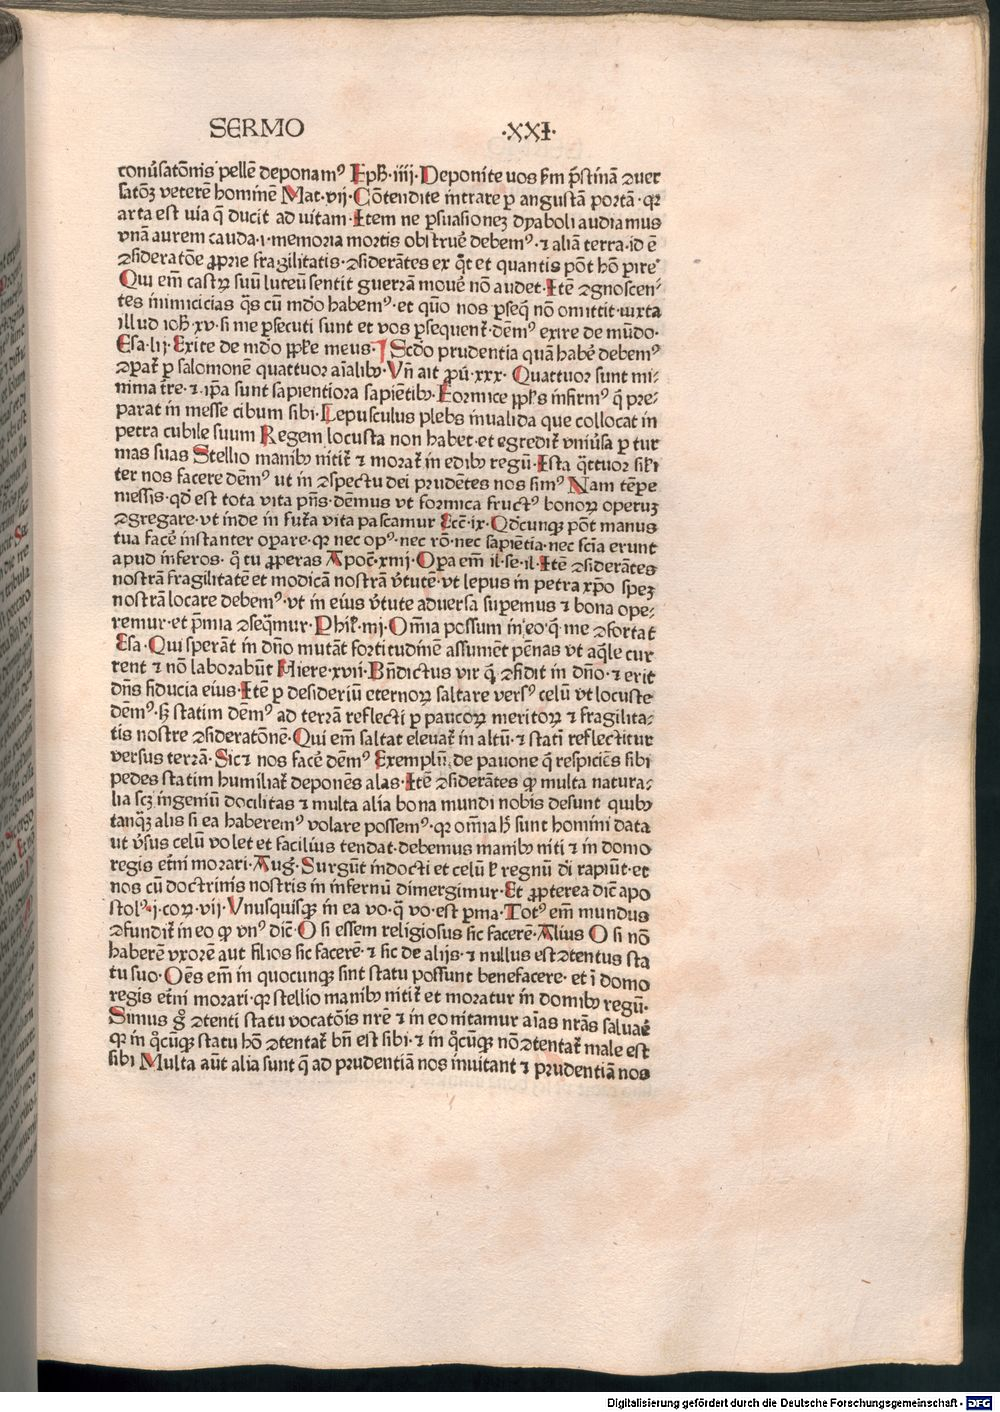 SERMO ·XXI·
conũsatõnis pellẽ deponamꝰ Eph·iiij·Deponite uos ẜm p̃stinã ꝯuer
satõꝫ veterẽ hominẽ Mat·vij·Cõtendite intrare ꝑ angustã portã·qꝛ
arta est uia q̃ ducit ad uitam·Item ne ꝑsuasioneꝫ dyaboli audiamus
vnã aurem cauda·i·memoria mortis obstruẽ debemꝰ·⁊ aliã terra·id ẽ
ꝯsideratõe ꝓprie fragilitatis·ꝯsiderãtes ex q̃t et quantis põt hõ ꝑire
Qui em̃ castꝝ suũ luteũ sentit guerrã mouẽ nõ audet·Itẽ ꝯgnoscen⸗
tes inimicicias q̃s cũ mũdo habemꝰ·et quõ nos ꝑseq̃ nõ omittit·iuxta
illud ioh̃·xv·si me ꝑsecuti sunt et vos ꝑsequent̃·dẽmꝰ exire de mũdo·
Esa·lij·Exite de mũdo pple meus· Scd̃o prudentia quã habẽ debemꝰ
ꝯpat̃ ꝑ salomonẽ quattuor aĩalibꝫ·Vñ ait ꝓu̾·xxx·Quattuor sunt mi⸗
nima t̃re·⁊ ip̃a sunt sapientiora sapiẽtibꝫ·Formice ppl̃s infirmꝰ q̃ pre⸗
parat in messe cibum sibi·Lepusculus plebs inualida que collocat in
petra cubile suum Regem locusta non habet·et egredit̃ vniũsa ꝑ tur
mas suas Stellio manibꝫ nitit̃ ⁊ morat̃ in edibꝫ regũ·Ista q̃ttuor sil̃i
ter nos facere dẽmꝰ ut in ꝯspectu dei prudẽtes nos simꝰ Nam tẽpe
messis·qd̃ est tota vita p̃ns·dẽmus vt formica fructꝰ bonoꝝ operuꝫ
ꝯgregare·vt inde in fut̃a vita pascamur Ecc̃·ix·Qd̃cunqꝫ põt manus
tua facẽ instanter oꝑare·qꝛ nec opꝰ·nec rõ·nec sapiẽtia·nec scĩa erunt
apud inferos·q̃ tu ꝓperas Apoc̃·xiiij·Oꝑa em̃ il·se·il·Itẽ ꝯsiderãtes
nostrã fragilitatẽ et modicã nostrã v̾tutẽ·vt lepus in petra xp̃o speꝫ
nostrã locare debemꝰ·vt in eius v̾tute aduersa suꝑemus ⁊ bona ope⸗
remur·et p̃mia ꝯseq̃mur·Phil̃·iiij·Om̃ia possum in eo·q̃ me ꝯfortat
Esa·Qui sperãt in dño mutãt fortitudinẽ assument pẽnas vt aq̃le cur
rent ⁊ nõ laborabũt Hiere·xvij·Bñdictus vir q̃ ꝯfidit in dño·⁊ erit
dñs fiducia eius·Itẽ ꝑ desideriũ eternoꝝ saltare versꝰ celũ vt locuste
dẽmꝰ·sꝫ statim dẽmꝰ ad terrã reflecti ꝑ paucoꝝ meritoꝝ ⁊ fragilita⸗
tis nostre ꝯsideratõnẽ·Qui em̃ saltat eleuat̃ in altũ·⁊ statĩ reflectitur
versus terrã·Sic⁊ nos facẽ dẽmꝰ Exemplũ de pauone q̃ respiciẽs sibi
pedes statim humiliat̃ deponẽs alas·Itẽ ꝯsiderãtes qꝫ multa natura⸗
lia scꝫ ingeniũ docilitas ⁊ multa alia bona mundi nobis desunt quibꝫ
tanq̃ꝫ alis si ea haberemꝰ volare possemꝰ·qꝛ om̃ia h̃ sunt homini data
ut v̾sus celũ volet et facilius tendat·debemus manibꝫ niti ⁊ in domo
regis et̃ni morari·Aug̾·Surgũt indocti et celũ ł regnũ di rapiũt·et
nos cũ doctrinis nostris in infernũ dimergimur·Et ꝓpterea dic̃ apo
stolꝰ·j·coꝝ·vij·Vnusquisqꝫ in ea vo·q̃ vo·est ꝑma·Totꝰ em̃ mundus
ꝯfundit̃ in eo qꝫ vnꝰ dic̃·O si essem religiosus sic facerẽ·Alius O si nõ
haberẽ vxorẽ aut filios sic facerẽ·⁊ sic de alijs·⁊ nullus est ꝯtentus sta
tu suo·Oẽs em̃ in quocunqꝫ sint statu possunt benefacere·et ĩ domo
regis et̃ni morari·qꝛ stellio manibꝫ nitit̃ et moratur in domibꝫ regũ·
Simus g̃ ꝯtenti statu vocatõis nr̃e ⁊ in eo nitamur aĩas nr̃as saluaẽ
qꝛ in q̃cũqꝫ statu hõ ꝯtentat̃ bñ est sibi·⁊ in q̃cũqꝫ nõ ꝯtentat̃ male est
sibi Multa aũt alia sunt q̃ ad prudentiã nos inuitant ⁊ prudentiã nos
Digitalisierung gefördert durch die Deutsche Forschungsgemeinschaft - DFG